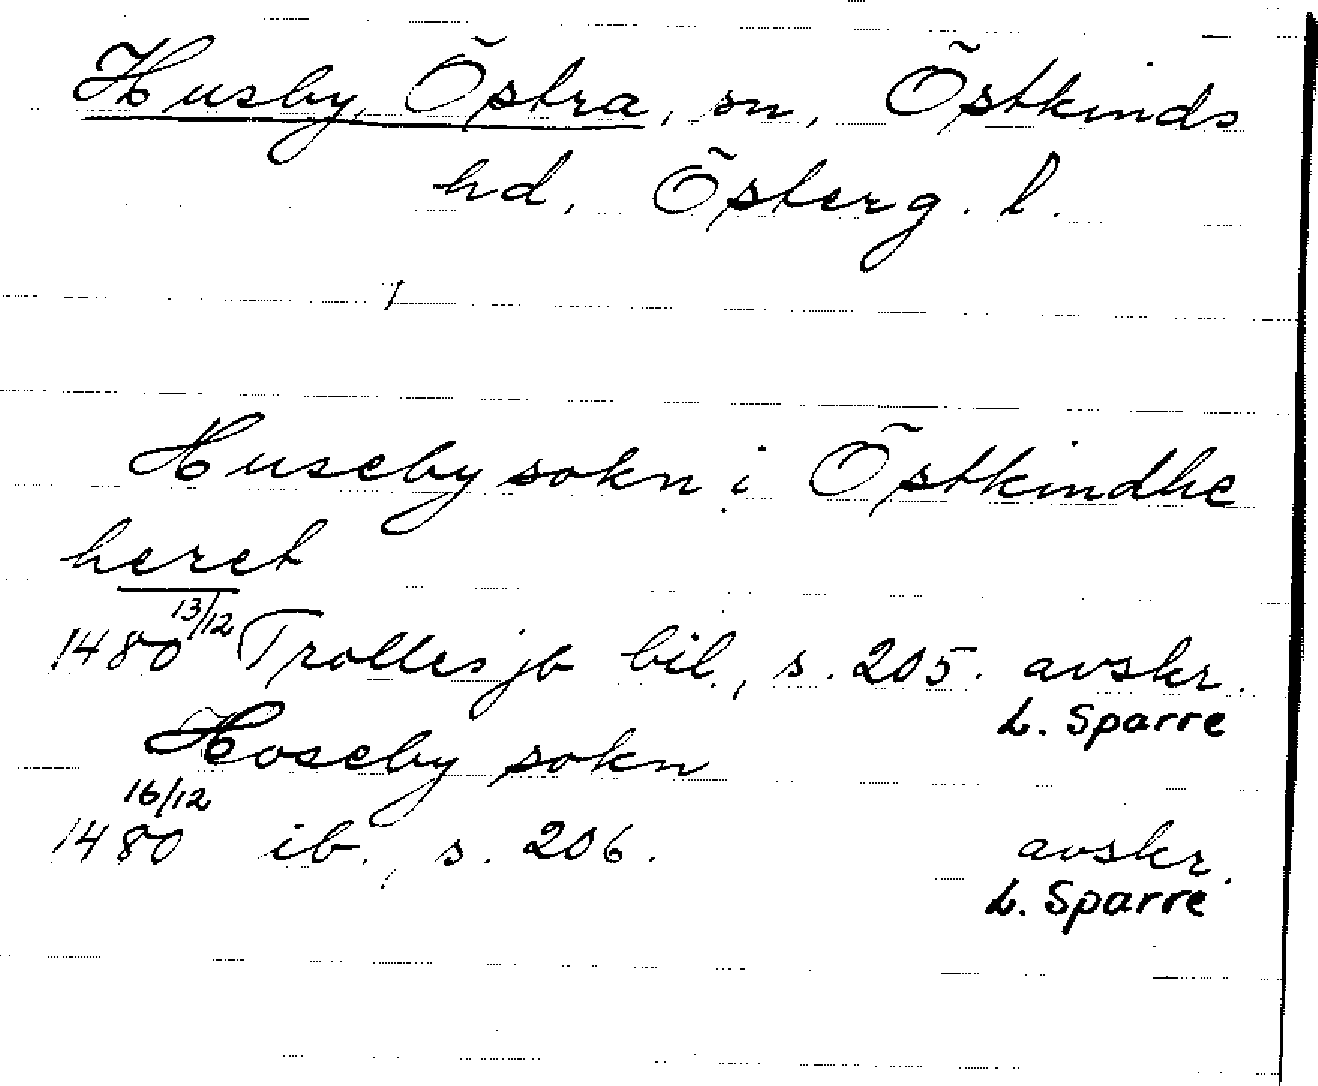 Husby, Östra, sn, Östkinds
hd. Österg. l.
Huseby sokn i Östkindhe
heret
1480 13/12 Trolles jb bil., s. 205. avskr.
L. Sparre
Hoseby sokn
16/12
1480 ib., s. 206. avskr.
L. Sparre